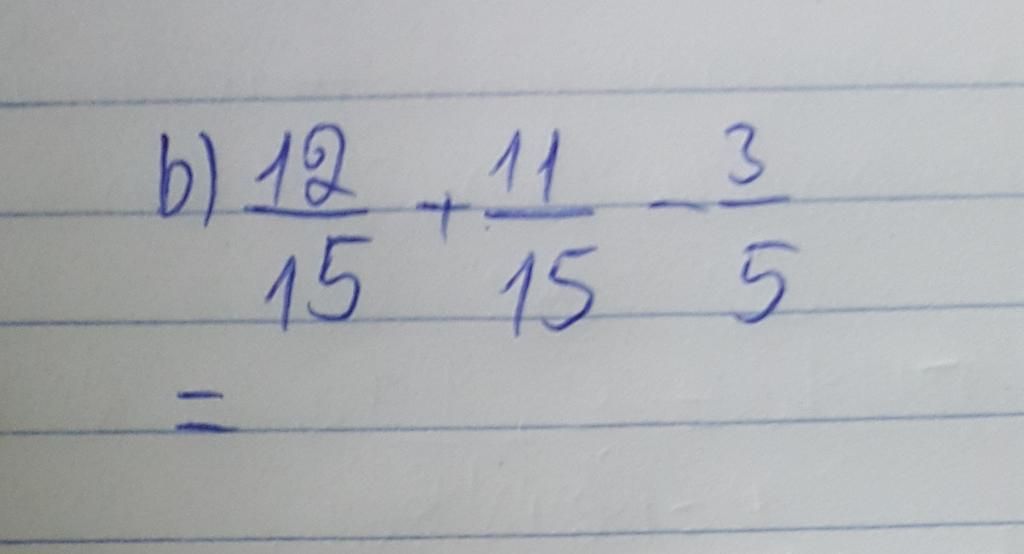 b) 12/15 + 11/15 - 3/5
=